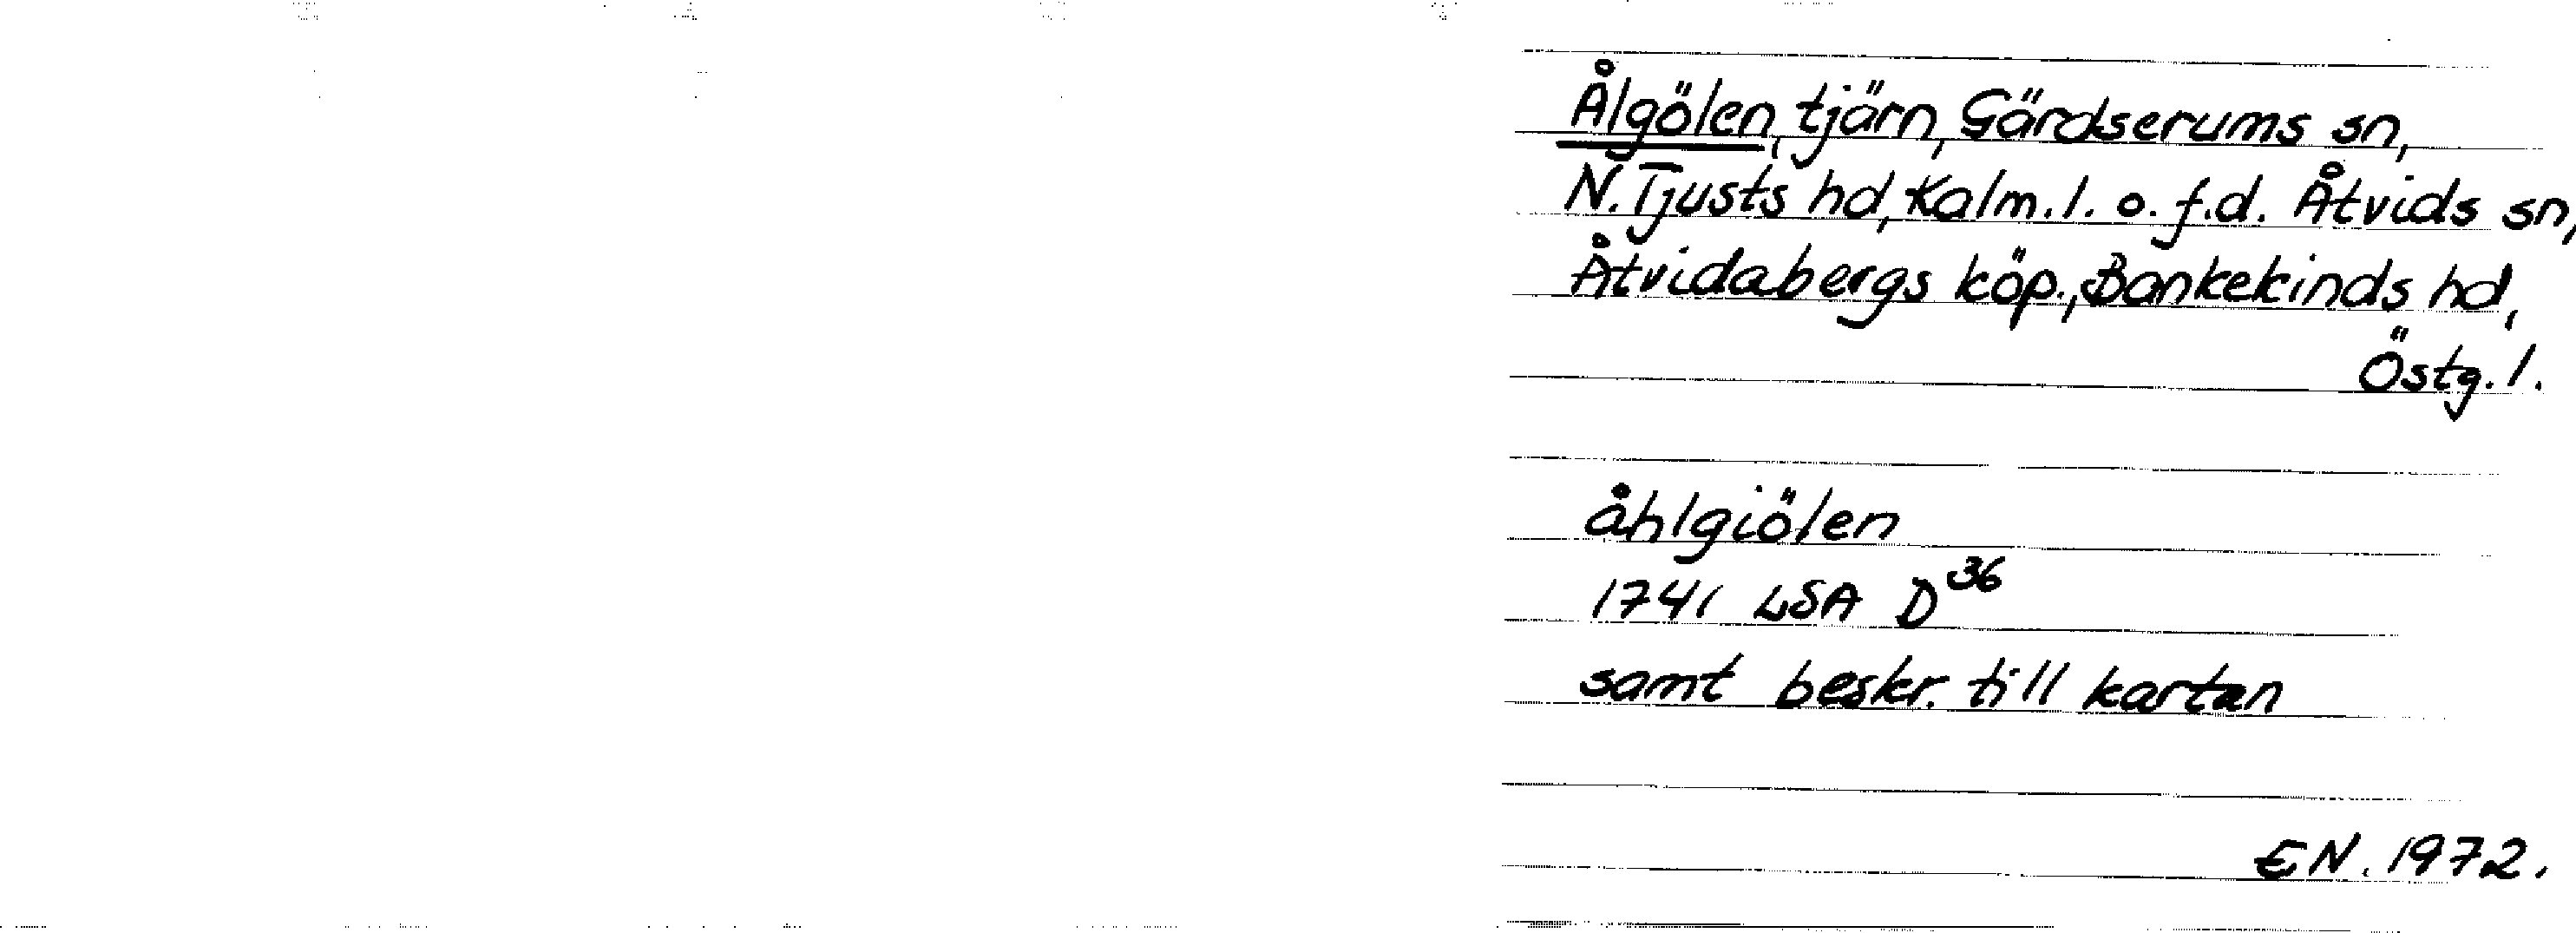 Ålgölen, tjärn, Gärdserums sn,
N. Tjusts hd, Kalm. l. o. f.d. Åtvids sn,
Åtvidabergs köp., Bankekinds hd,
Östg. l.
åhlgiölen
1741 LSA D36
samt beskr. till kartan
EN. 1972.